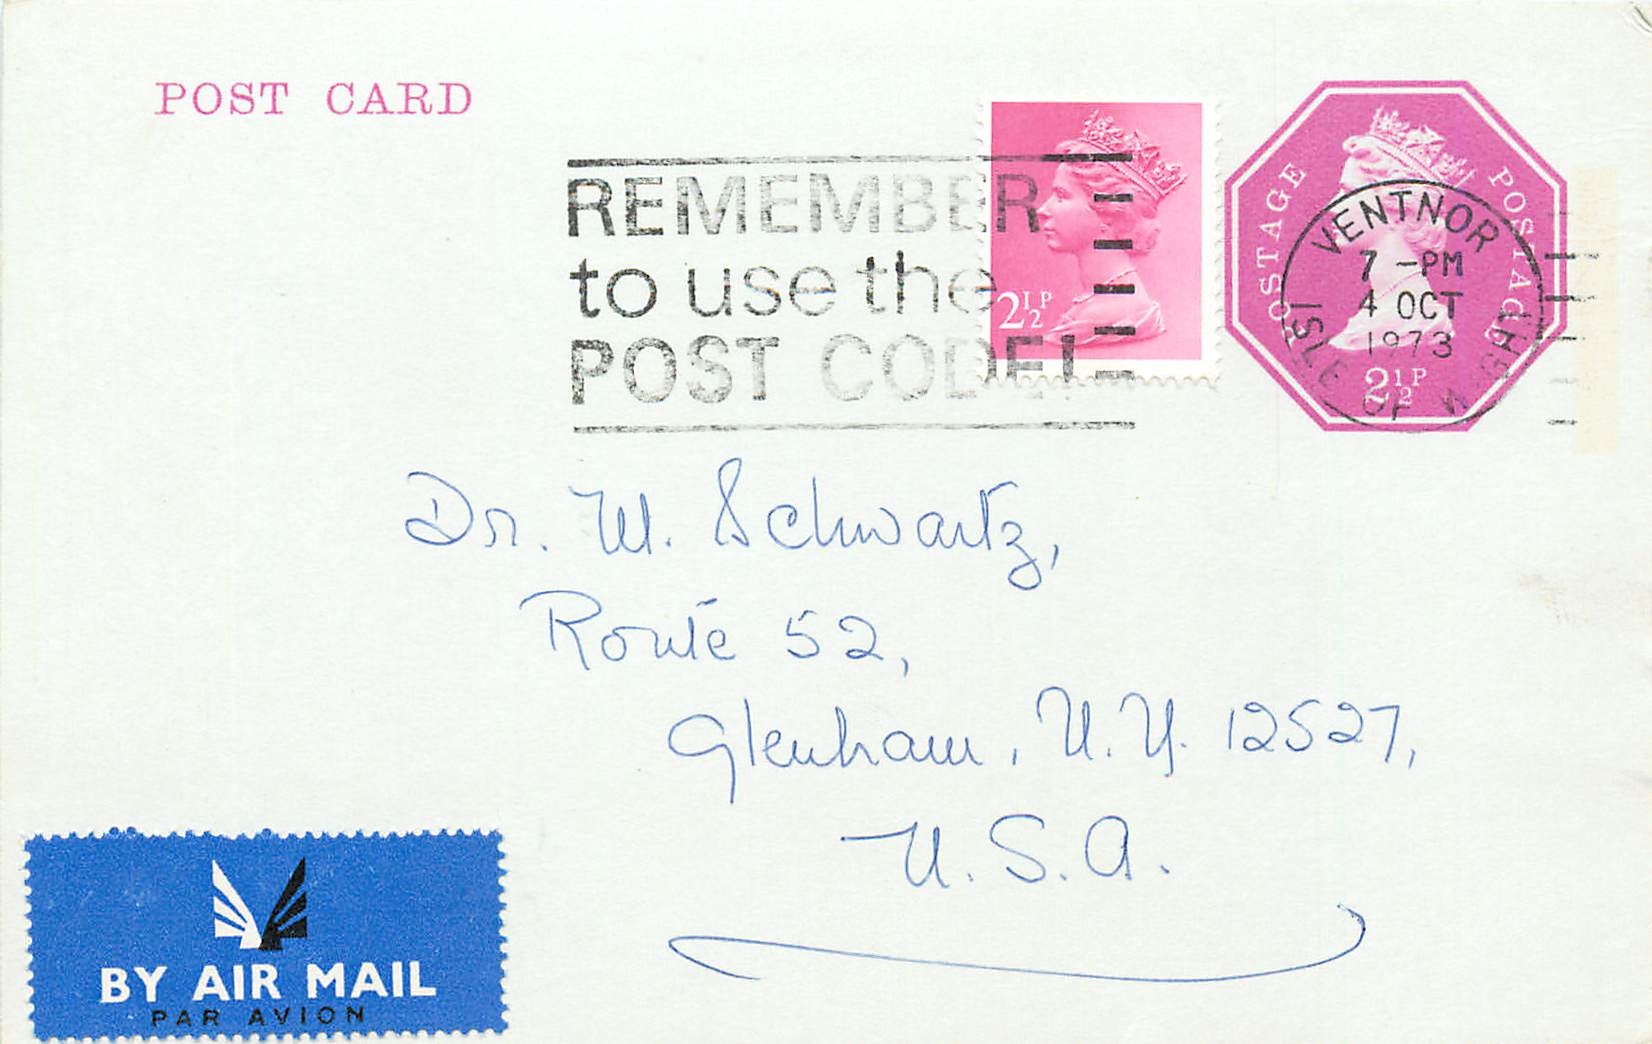 POST CARD
REMEMBER
to use the
POST CODE!
2½P
POSTAGE POSTAGE
2½P
VENTNOR
7 -PM
4 OCT
1973
ISLE OF WIGHT
Dr. W. Schwartz,
Route 52,
Glenham, N.Y. 12527,
U.S.A.
BY AIR MAIL
PAR AVION